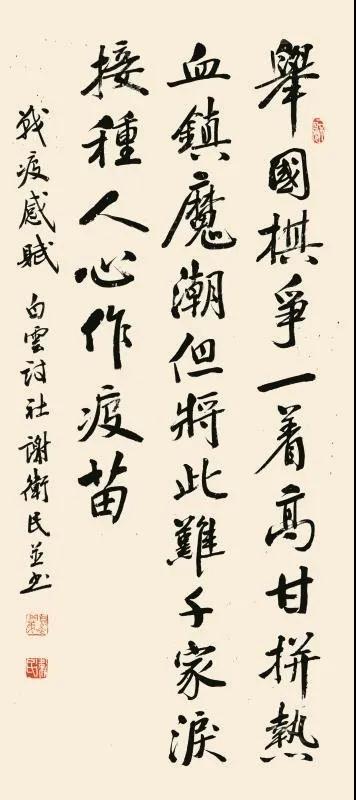 舉國棋爭一着高甘拼熱
血鎮魔潮但將此難千家淚
接種人心作疫苗
戰疫感賦 白雲詩社謝衛民並書